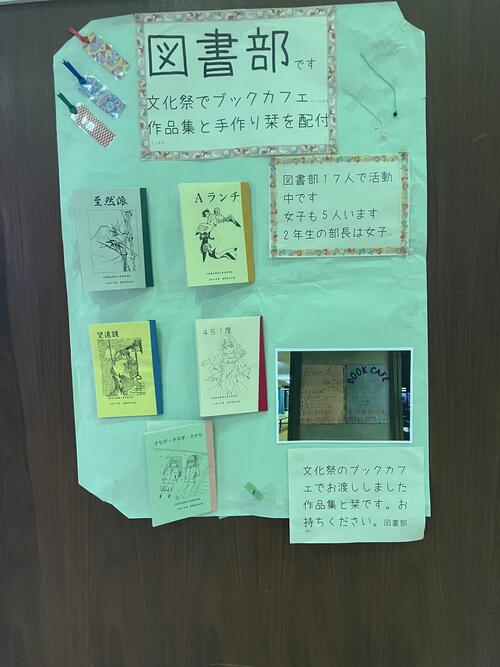 図書部です
文化祭でブックカフェ
作品集と手作り栞を配付
図書部17人で活動
中です
女子も5人います
2年生の部長は女子
至然派
Aランチ
望遠鏡
451度
さなが・さなぎ・さかな
BOOK CAFE
文化祭のブックカフ
ェでお渡ししました
作品集と栞です。お
持ちください。図書部